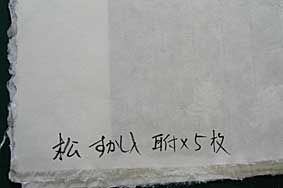 松 すかし入 耳付×5枚